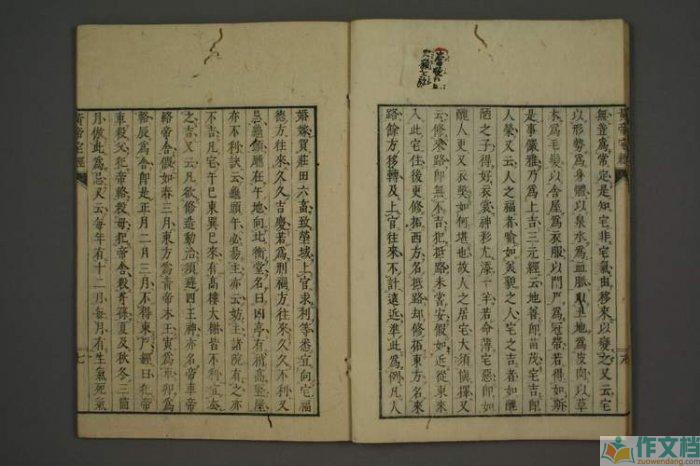 黃帝宅經
無差為常定是知宅非宅氣由移來以變之又云宅
以形勢為身體以泉水為血脈以土地為皮肉以草
木為毛髮以舍屋為衣服以門戶為冠帶若得如斯
是事儼雅乃為上吉三元經云地善即苗茂宅吉即
人榮又云人之福者喻如美貌之人宅之吉者如醜
陋之子得好衣裳神彩尤添一半若命薄宅惡即如
醜人更又衣弊如何堪也故人之居宅大須慎擇又
云修來路即無不吉犯抵路未嘗安假如近從東來
入此宅住後更修拓西方名抵路却修拓東方名來
路餘方移轉及上官往來不計遠近準此為例凡人
婚嫁買莊田六畜致塋域上官求利等悉宜向宅福
德方往來久久吉慶若為刑禍方往來久久不利又
忌龜頭廳在午地向北衝堂名曰凶亭有稍高竪屋
亦不利訣云龜頭午必易主亦云妨主諸院有之亦
不吉凡宅午巳東巽巳來有高樓大榭皆不利宜去
之吉又云凡欲修造動治須避四王神亦名帝車帝
輅帝舍假如春三月東方為青帝木王寅為車卯為
輅辰為舍即是正月二月三月不得東戶經曰犯帝
車殺父犯帝輅殺母犯帝舍殺子孫夏及秋冬三箇
月倣此為忌又云每年有十二月每月有生氣死氣
黃帝宅經
七
作文档
zuowendang.com